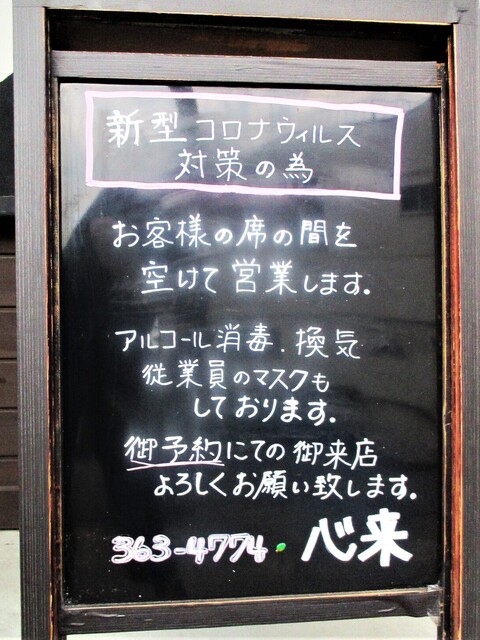 新型コロナウィルス
対策の為
お客様の席の間を
空けて営業します。
アルコール消毒.換気
従業員のマスクも
しております。
御予約にての御来店
よろしくお願い致します。
363-4774・心来